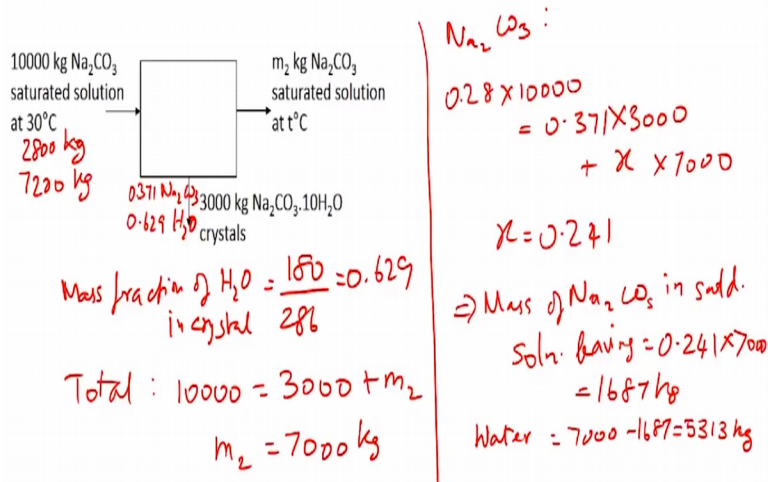 10000 kg Na₂CO₃
saturated solution
at 30°C
2800 kg
7200 kg
m₂ kg Na₂CO₃
saturated solution
at t°C
0.371 Na₂CO₃
0.629 H₂O
3000 kg Na₂CO₃.10H₂O
crystals
Mass fraction of H₂O = 180/286 = 0.629
in crystal
Total : 10000 = 3000 + m₂
m₂ = 7000 kg
Na₂CO₃ :
0.28 × 10000
= 0.371 × 3000
+ x × 7000
x = 0.241
⇒ Mass of Na₂CO₃ in satd.
Soln. leaving = 0.241 × 7000
= 1687 kg
Water = 7000 - 1687 = 5313 kg